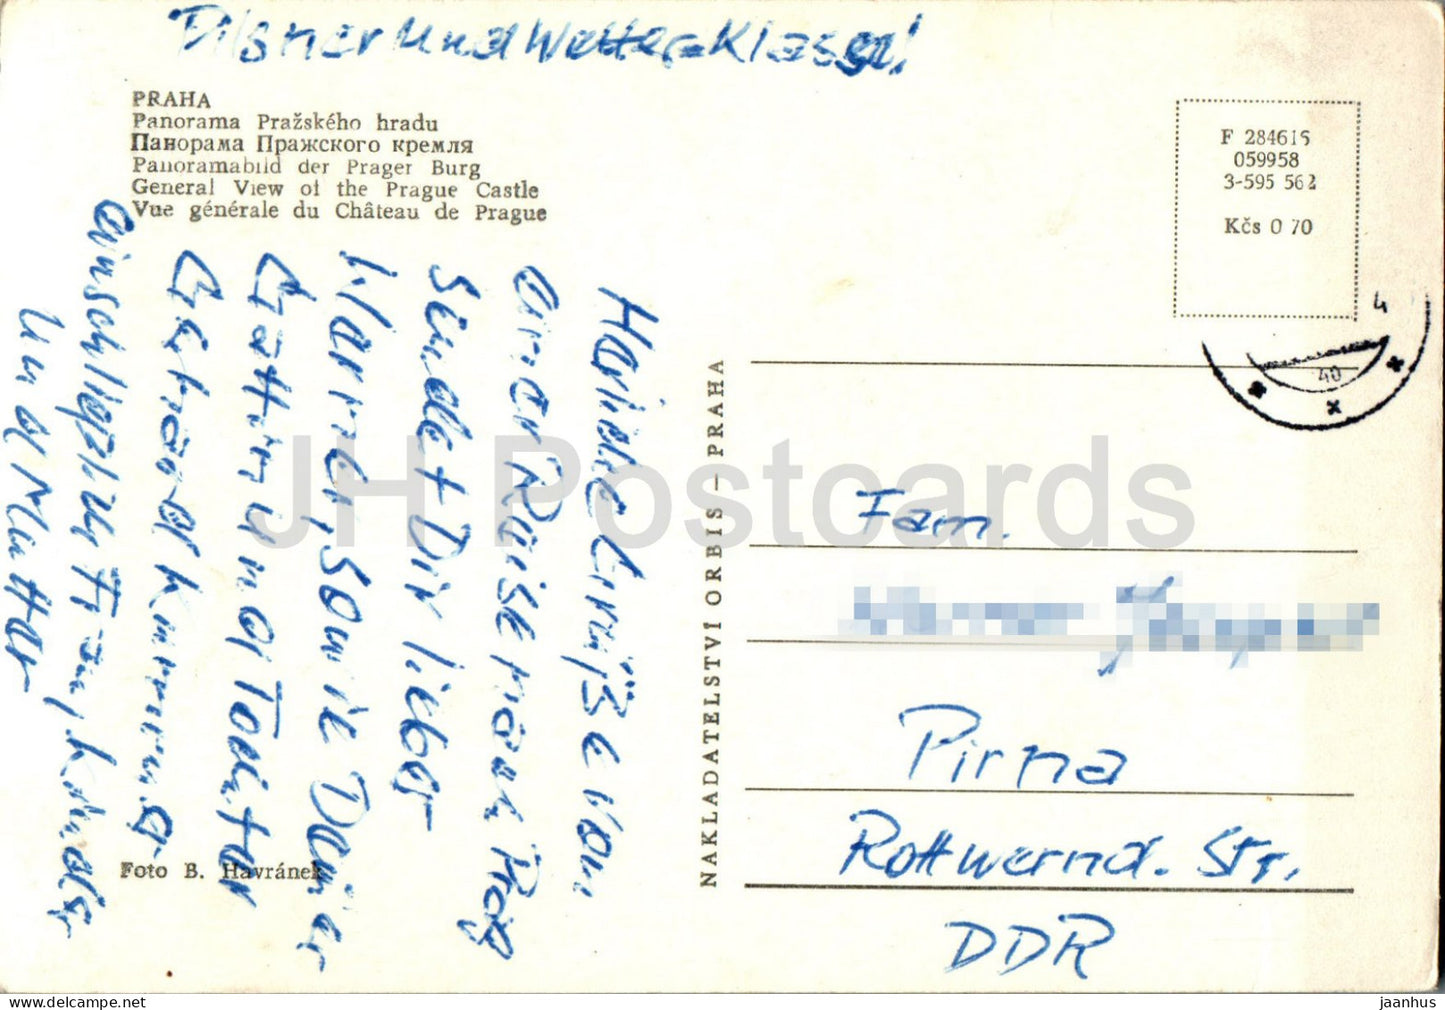 Pilsner und Wetter = Klasse!
PRAHA
Panorama Pražského hradu
Панорама Пражского кремля
Panoramabild der Prager Burg
General View of the Prague Castle
Vue générale du Château de Prague
Herzliche Grüße von
einer Reise nach Prag
sendet Dir lieber
Werner, sowie Deiner
Gattin und Tochter
Gerhard
einschließlich Frau, Kinder
und Mutter
Foto B. Havránek
NAKLADATELSTVI ORBIS – PRAHA
F 284615
059958
3-595 562
Kčs 0 70
4
40
Fam.
Pirna
Rottwernd. Str.
DDR
JH Postcards
picclick.de www.delcampe.net
jaanhus